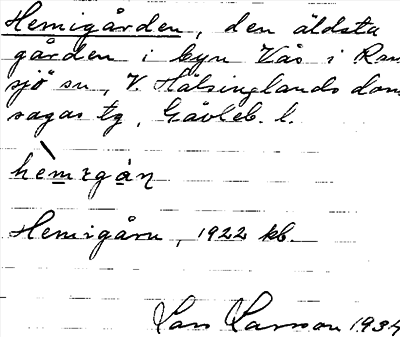 Hemigården, den äldsta
gården i byn Vås i Ram
sjö sn, V. Hälsinglands dom
sagas tg, Gävleb. l.
hèmɪgàn
Hemigårn, 1922 kb.
Lars Larsson 1934